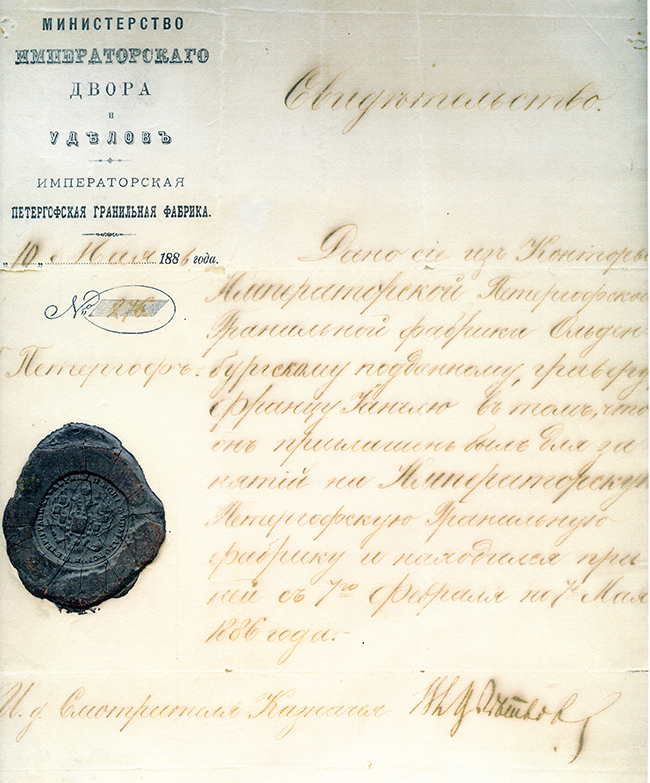 МИНИСТЕРСТВО
ИМПЕРАТОРСКАГО
ДВОРА
И
УДѢЛОВЪ
ИМПЕРАТОРСКАЯ
ПЕТЕРГОФСКАЯ ГРАНИЛЬНАЯ ФАБРИКА.
„10„ Мая 1886 года.
№ 276
Петергофъ.
Свидѣтельство.
Дано сіе изъ Конторы
Императорской Петергофской
Гранильной фабрики Ольден-
бургскому подданному, граверу
Францу Ганелю въ томъ, что
онъ приглашенъ былъ для за-
нятій на Императорскую
Петергофскую Гранильную
фабрику и находился при
ней съ 7го Февраля по 7е Мая
1886 года.-
И. д. Смотрителя Казначея